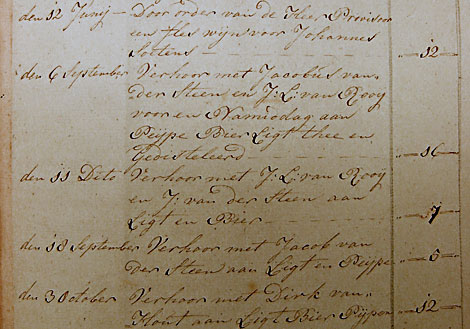 den 12 Junij — Door order van de Heer Provisor
een fles wijn voor Johannes
Soetens — „— 12
den 6 September Verhoor met Jacobus van
Der Steen en J: L: van Rooy
voor en Namiodag aan
Peijpe Bier Ligt thee en
Gedesteleerd — „— 16
den 11 Deto Verhoor met J: L: van Rooy
en J: van der Steen aan
Ligt en Bier — „— 7
den 18 September Verhoor met Jacob van
Der Steen aan Ligt en Peijpe „— 6
den 3 October Verhoor met Dirk van
Hout aan Ligt Bier Peijpen „— 12